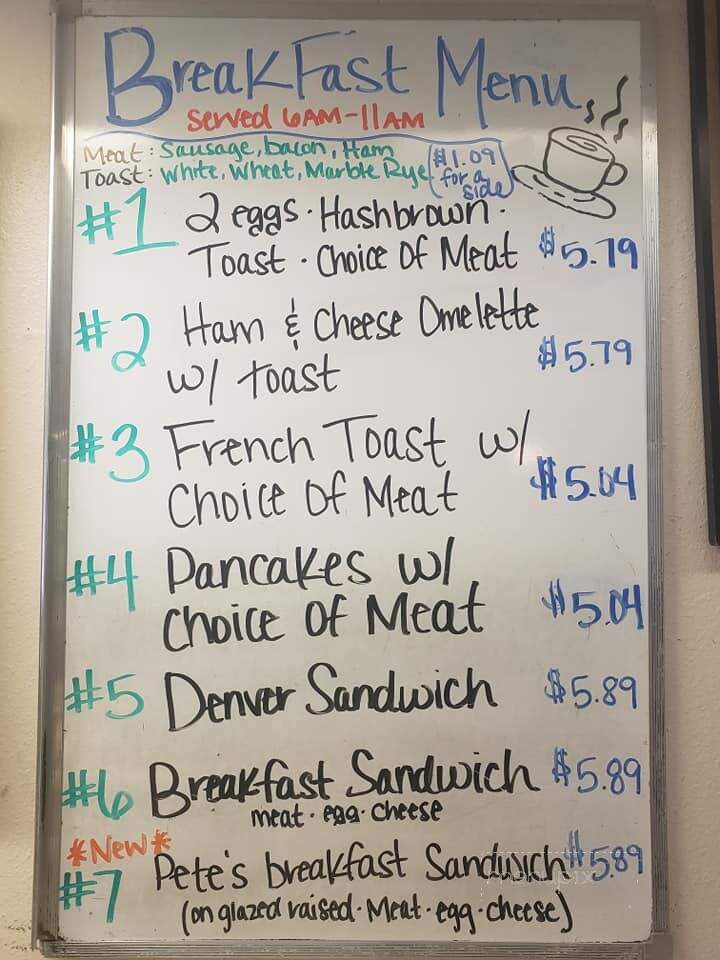 BreakFast Menu
Served 6AM-11AM
Meat: Sausage, bacon, Ham
Toast: White, Wheat, Marble Rye
$1.09
for a
side
#1 2 eggs · Hashbrown ·
Toast · Choice Of Meat $5.79
#2 Ham & Cheese Omelette
w/ toast $5.79
#3 French Toast w/
Choice Of Meat $5.04
#4 Pancakes w/
Choice Of Meat $5.04
#5 Denver Sandwich $5.89
#6 Breakfast Sandwich $5.89
meat · egg · cheese
*New*
#7 Pete's breakfast Sandwich $5.89
(on glazed raised · Meat · egg · cheese)
menupix